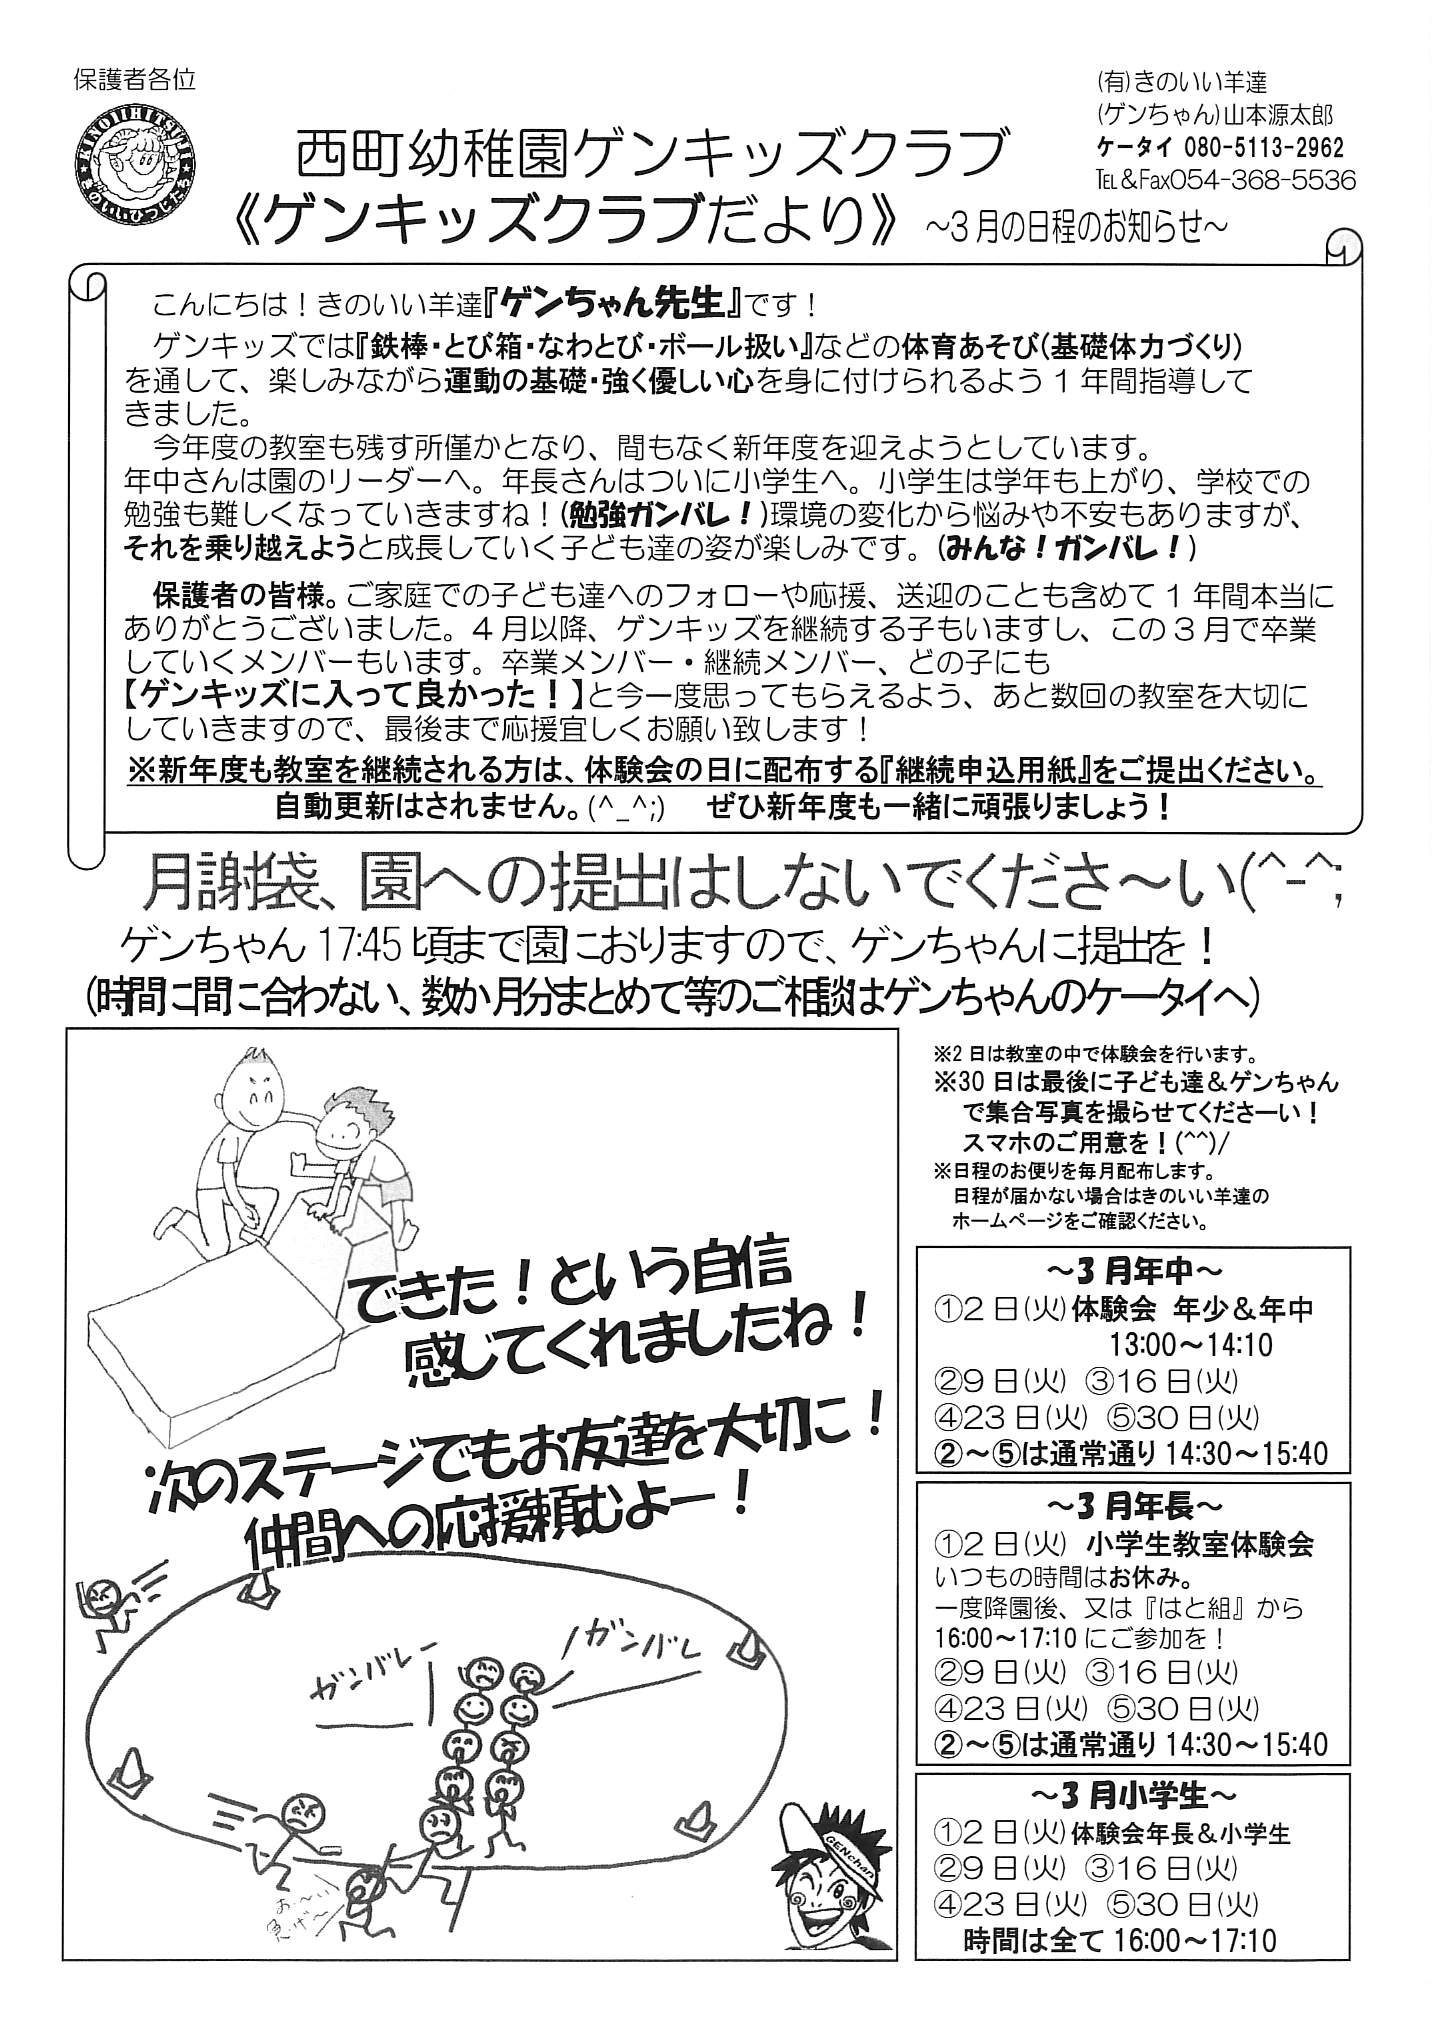 保護者各位
(有)きのいい羊達
(ゲンちゃん)山本源太郎
ケータイ 080-5113-2962
TEL＆Fax054-368-5536
KINOIIHITSUJI
きのいいひつじたち
西町幼稚園ゲンキッズクラブ
《ゲンキッズクラブだより》 ～3月の日程のお知らせ～
こんにちは！きのいい羊達『ゲンちゃん先生』です！
ゲンキッズでは『鉄棒・とび箱・なわとび・ボール扱い』などの体育あそび(基礎体力づくり)
を通して、楽しみながら運動の基礎・強く優しい心を身に付けられるよう1年間指導して
きました。
今年度の教室も残す所僅かとなり、間もなく新年度を迎えようとしています。
年中さんは園のリーダーへ。年長さんはついに小学生へ。小学生は学年も上がり、学校での
勉強も難しくなっていきますね！(勉強ガンバレ！)環境の変化から悩みや不安もありますが、
それを乗り越えようと成長していく子ども達の姿が楽しみです。(みんな！ガンバレ！)
保護者の皆様。ご家庭での子ども達へのフォローや応援、送迎のことも含めて1年間本当に
ありがとうございました。4月以降、ゲンキッズを継続する子もいますし、この3月で卒業
していくメンバーもいます。卒業メンバー・継続メンバー、どの子にも
【ゲンキッズに入って良かった！】と今一度思ってもらえるよう、あと数回の教室を大切に
していきますので、最後まで応援宜しくお願い致します！
※新年度も教室を継続される方は、体験会の日に配布する『継続申込用紙』をご提出ください。
自動更新はされません。(^_^;) ぜひ新年度も一緒に頑張りましょう！
月謝袋、園への提出はしないでくださ～い(^-^;
ゲンちゃん17:45頃まで園におりますので、ゲンちゃんに提出を！
(時間に間に合わない、数か月分まとめて等のご相談はゲンちゃんのケータイへ)
できた！という自信
感じてくれましたね！
次のステージでもお友達を大切に！
仲間への応援頼むよー！
ガンバレ
ガンバレ
お～い
急げ～
GENchan
※2日は教室の中で体験会を行います。
※30日は最後に子ども達＆ゲンちゃん
で集合写真を撮らせてくださーい！
スマホのご用意を！(^^)/
※日程のお便りを毎月配布します。
日程が届かない場合はきのいい羊達の
ホームページをご確認ください。
～3月年中～
①2日(火)体験会 年少＆年中
13:00～14:10
②9日(火) ③16日(火)
④23日(火) ⑤30日(火)
②～⑤は通常通り14:30～15:40
～3月年長～
①2日(火) 小学生教室体験会
いつもの時間はお休み。
一度降園後、又は『はと組』から
16:00～17:10にご参加を！
②9日(火) ③16日(火)
④23日(火) ⑤30日(火)
②～⑤は通常通り14:30～15:40
～3月小学生～
①2日(火)体験会年長＆小学生
②9日(火) ③16日(火)
④23日(火) ⑤30日(火)
時間は全て16:00～17:10